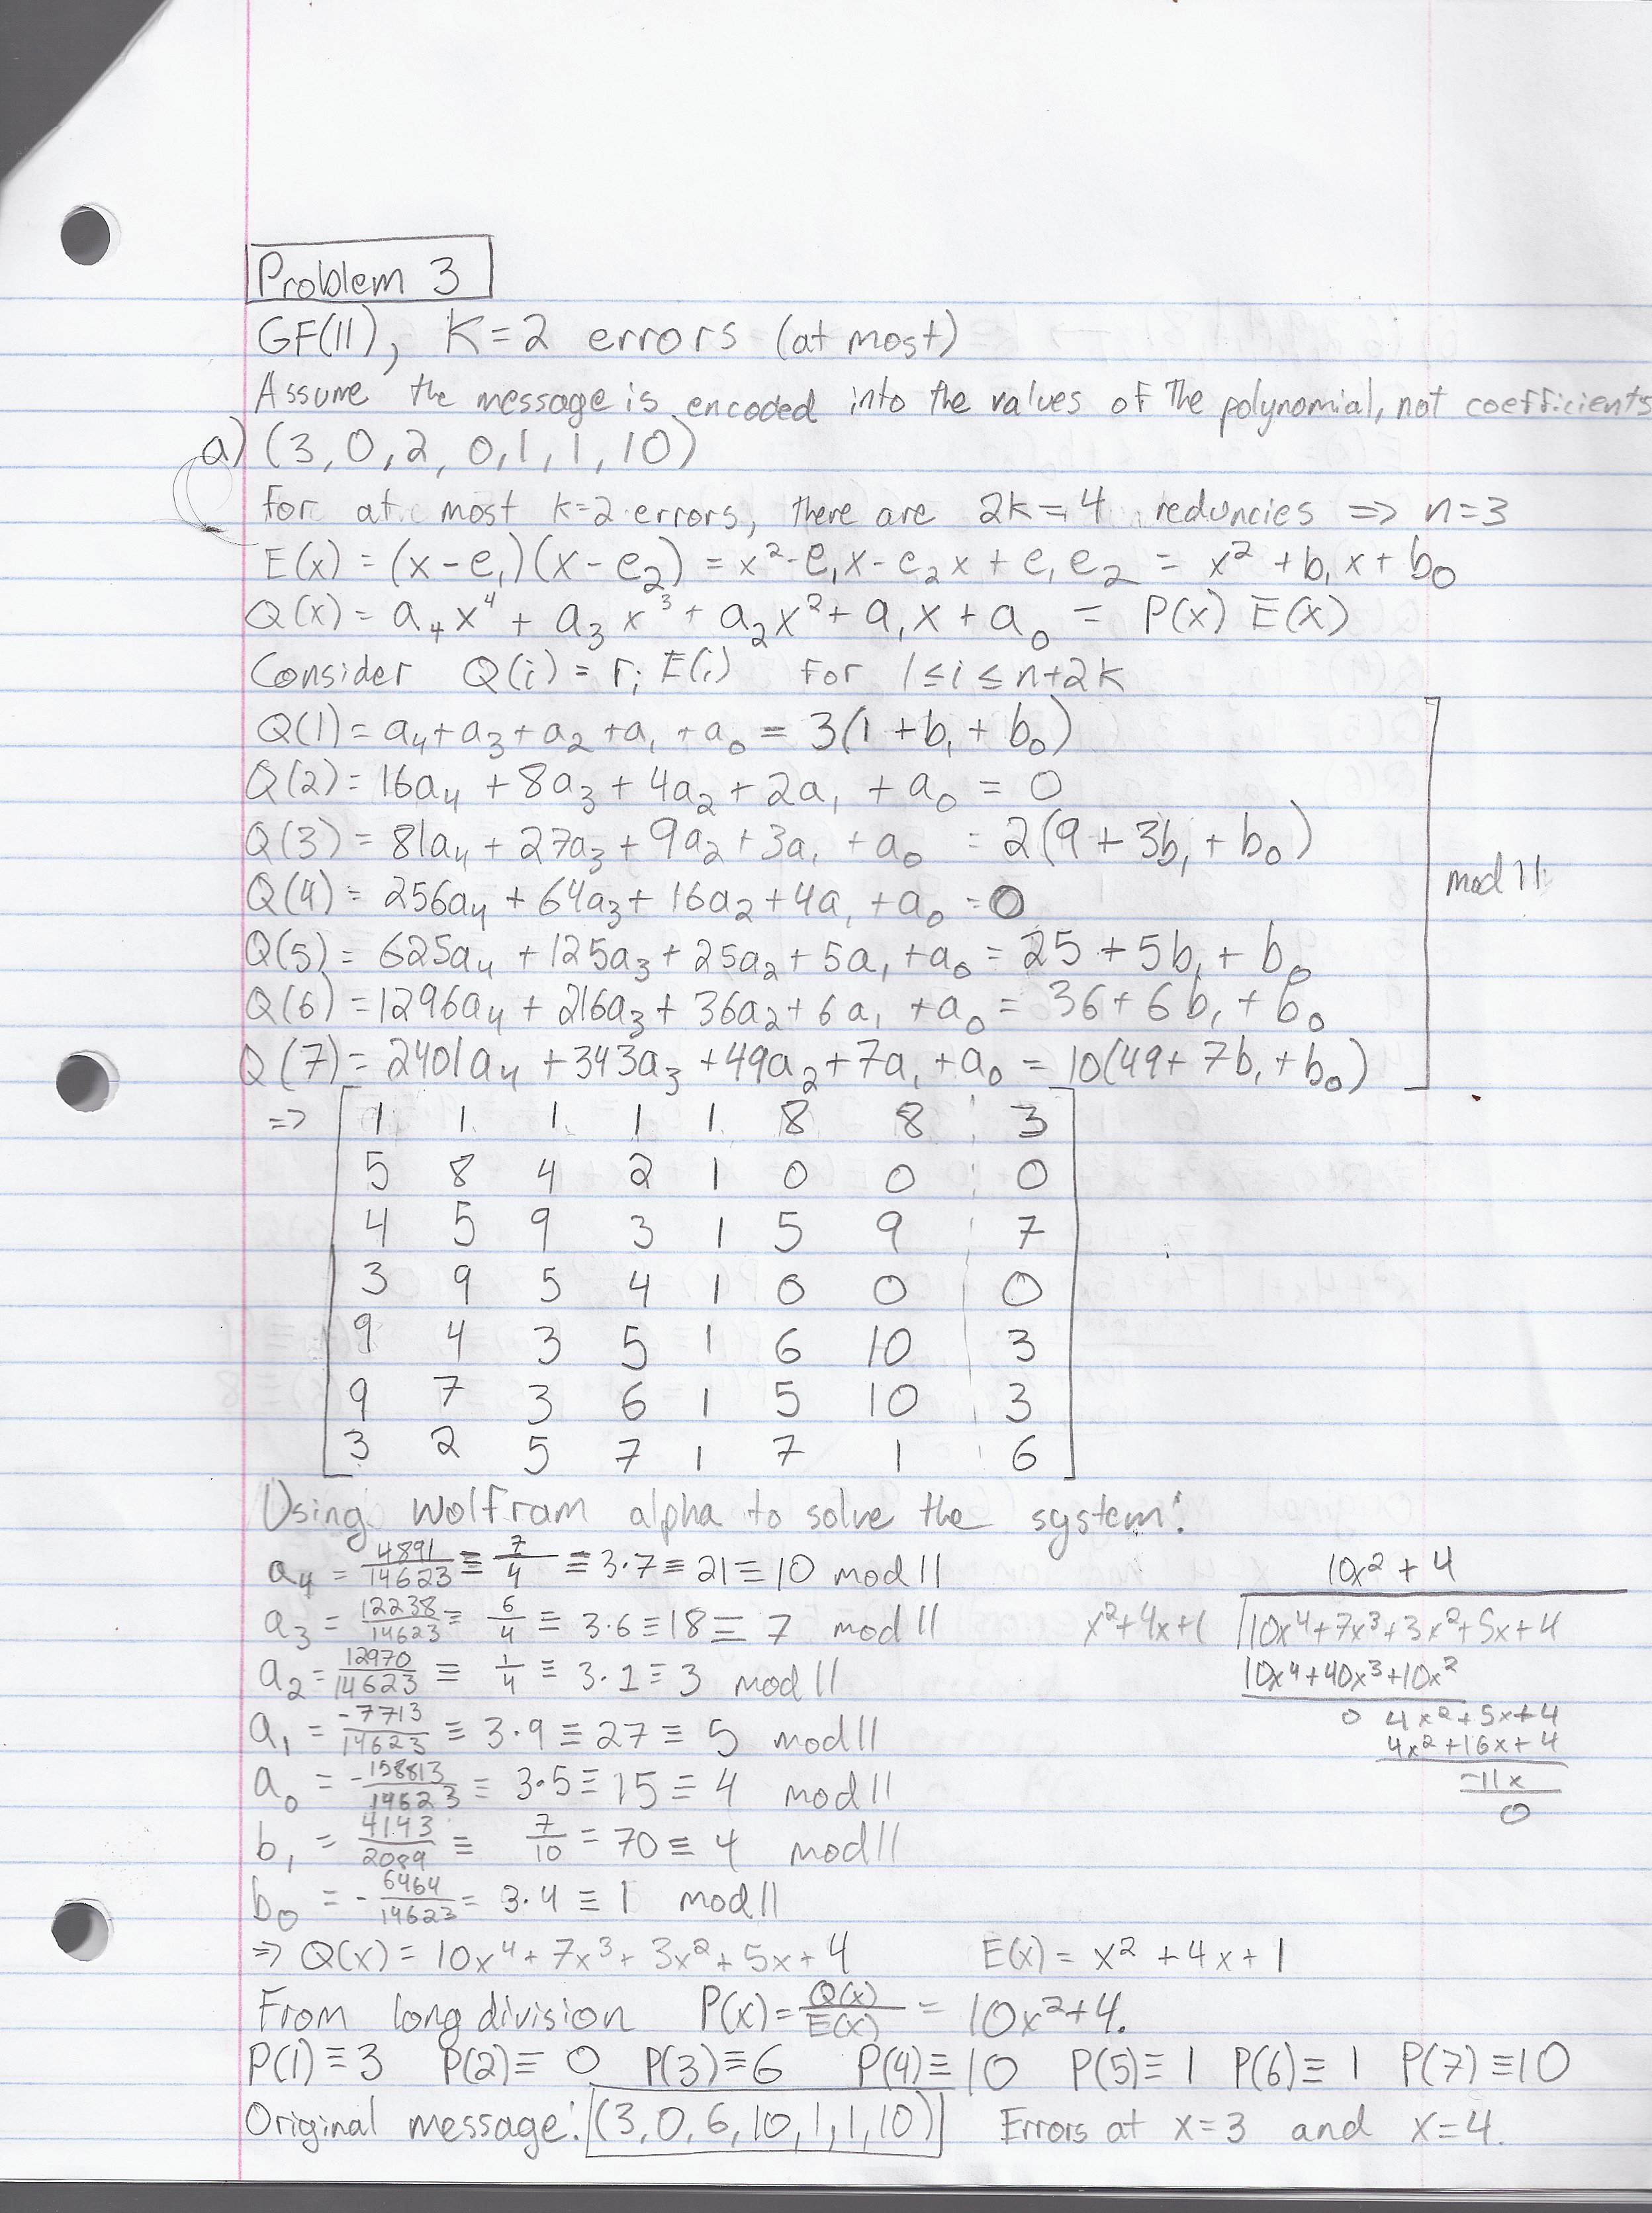 Problem 3
GF(11), K=2 errors (at most)
Assume the message is encoded into the values of the polynomial, not coefficients
a) (3, 0, 2, 0, 1, 1, 10)
for at most k=2 errors, there are 2k=4 reduncies => n=3
E(x) = (x-e₁)(x-e₂) = x²-e₁x-e₂x+e₁e₂ = x²+b₁x+b₀
Q(x) = a₄x⁴ + a₃x³ + a₂x² + a₁x + a₀ = P(x) E(x)
Consider Q(i) = rᵢ E(i) for 1≤i≤n+2k
Q(1) = a₄+a₃+a₂+a₁+a₀ = 3(1+b₁+b₀)
Q(2) = 16a₄ + 8a₃ + 4a₂ + 2a₁ + a₀ = 0
Q(3) = 81a₄ + 27a₃ + 9a₂ + 3a₁ + a₀ = 2(9+3b₁+b₀)
Q(4) = 256a₄ + 64a₃ + 16a₂ + 4a₁ + a₀ = 0
mod 11
Q(5) = 625a₄ + 125a₃ + 25a₂ + 5a₁ + a₀ = 25 + 5b₁ + b₀
Q(6) = 1296a₄ + 216a₃ + 36a₂ + 6a₁ + a₀ = 36 + 6b₁ + b₀
Q(7) = 2401a₄ + 343a₃ + 49a₂ + 7a₁ + a₀ = 10(49+7b₁+b₀)
=> 1 1 1 1 1 8 8 3
5 8 4 2 1 0 0 0
4 5 9 3 1 5 9 7
3 9 5 4 1 0 0 0
9 4 3 5 1 6 10 3
9 7 3 6 1 5 10 3
3 2 5 7 1 7 1 6
Using wolfram alpha to solve the system:
a₄ = 4891/14623 ≡ 7/4 ≡ 3·7 ≡ 21 ≡ 10 mod 11
a₃ = 12238/14623 ≡ 6/4 ≡ 3·6 ≡ 18 ≡ 7 mod 11
a₂ = 12970/14623 ≡ 1/4 ≡ 3·1 ≡ 3 mod 11
a₁ = -7713/14623 ≡ 3·9 ≡ 27 ≡ 5 mod 11
a₀ = -158813/14623 ≡ 3·5 ≡ 15 ≡ 4 mod 11
b₁ = 4143/2089 ≡ 7/10 = 70 ≡ 4 mod 11
b₀ = -6464/14623 = 3·4 ≡ 1 mod 11
10x²+4
x²+4x+1 10x⁴+7x³+3x²+5x+4
10x⁴+40x³+10x²
0 4x²+5x+4
4x²+16x+4
-11x
0
=> Q(x) = 10x⁴+7x³+3x²+5x+4 E(x) = x²+4x+1
From long division P(x) = Q(x)/E(x) = 10x²+4.
P(1)≡3 P(2)≡0 P(3)≡6 P(4)≡10 P(5)≡1 P(6)≡1 P(7)≡10
Original message: (3,0,6,10,1,1,10) Errors at x=3 and x=4.